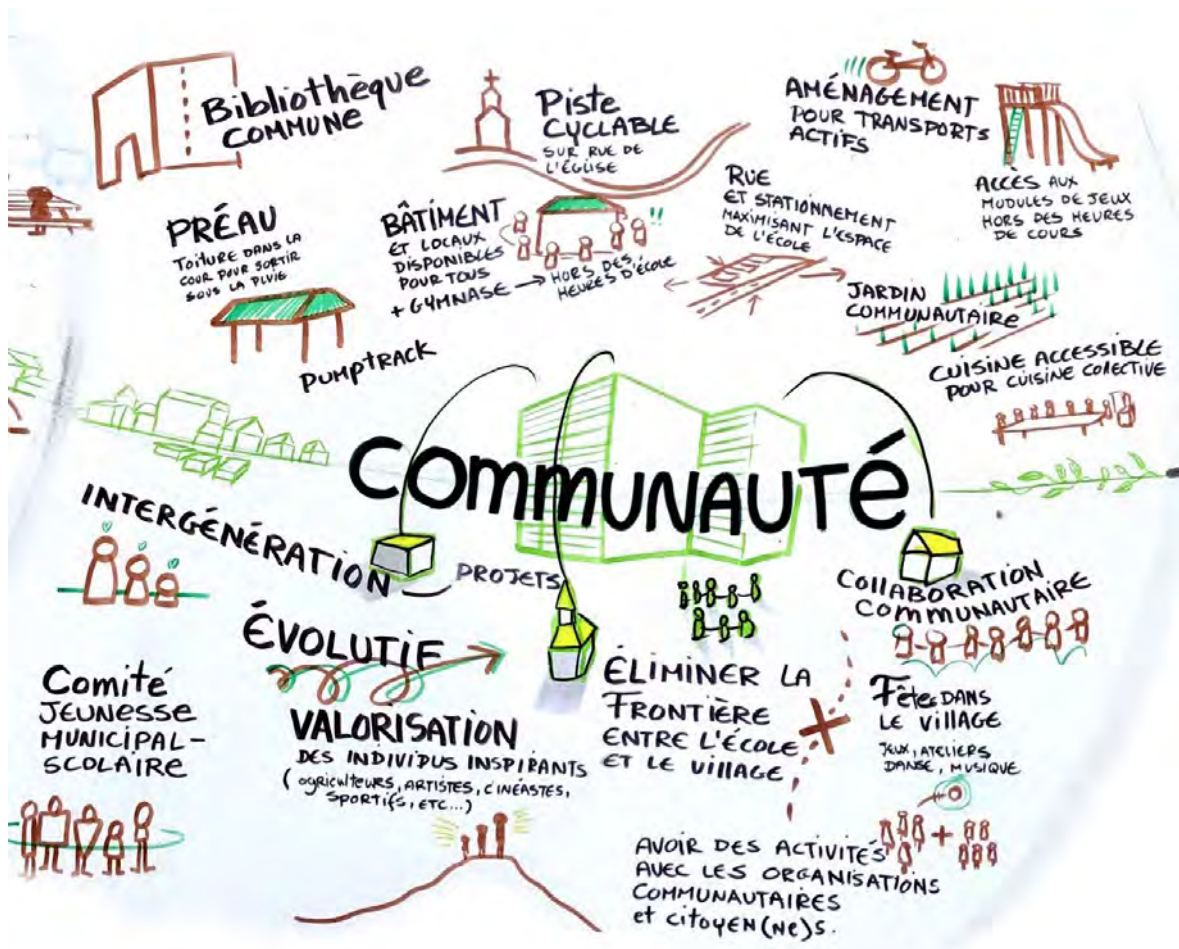 Bibliothèque
COMMUNE
Piste
CYCLABLE
SUR RUE DE
L'ÉGLISE
AMÉNAGEMENT
POUR TRANSPORTS
ACTIFS
ACCÈS AUX
MODULES DE JEUX
HORS DES HEURES
DE COURS
PRÉAU
TOITURE DANS LA
COUR POUR SORTIR
SOUS LA PLUIE
BÂTIMENT
ET LOCAUX
DISPONIBLES
POUR TOUS
+ GYMNASE → HORS DES
HEURES D'ÉCOLE
!!
RUE
ET STATIONNEMENT
MAXIMISANT L'ESPACE
DE L'ÉCOLE
JARDIN
COMMUNAUTAIRE
PUMPTRACK
CUISINE ACCESSIBLE
POUR CUISINE COLLECTIVE
COMMUNAUTÉ
INTERGÉNÉRATION
PROJETS
ÉVOLUTIF
Comité
JEUNESSE
MUNICIPAL-
SCOLAIRE
VALORISATION
DES INDIVIDUS INSPIRANTS
(agriculteurs, ARTISTES, CINÉASTES,
SPORTIFS, ETC...)
ÉLIMINER LA
FRONTIÈRE
ENTRE L'ÉCOLE
ET LE VILLAGE
COLLABORATION
COMMUNAUTAIRE
Fêtes DANS
LE VILLAGE
JEUX, ATELIERS
DANSE, MUSIQUE
AVOIR DES ACTIVITÉS
AVEC LES ORGANISATIONS
COMMUNAUTAIRES
et citoyen(ne)s.